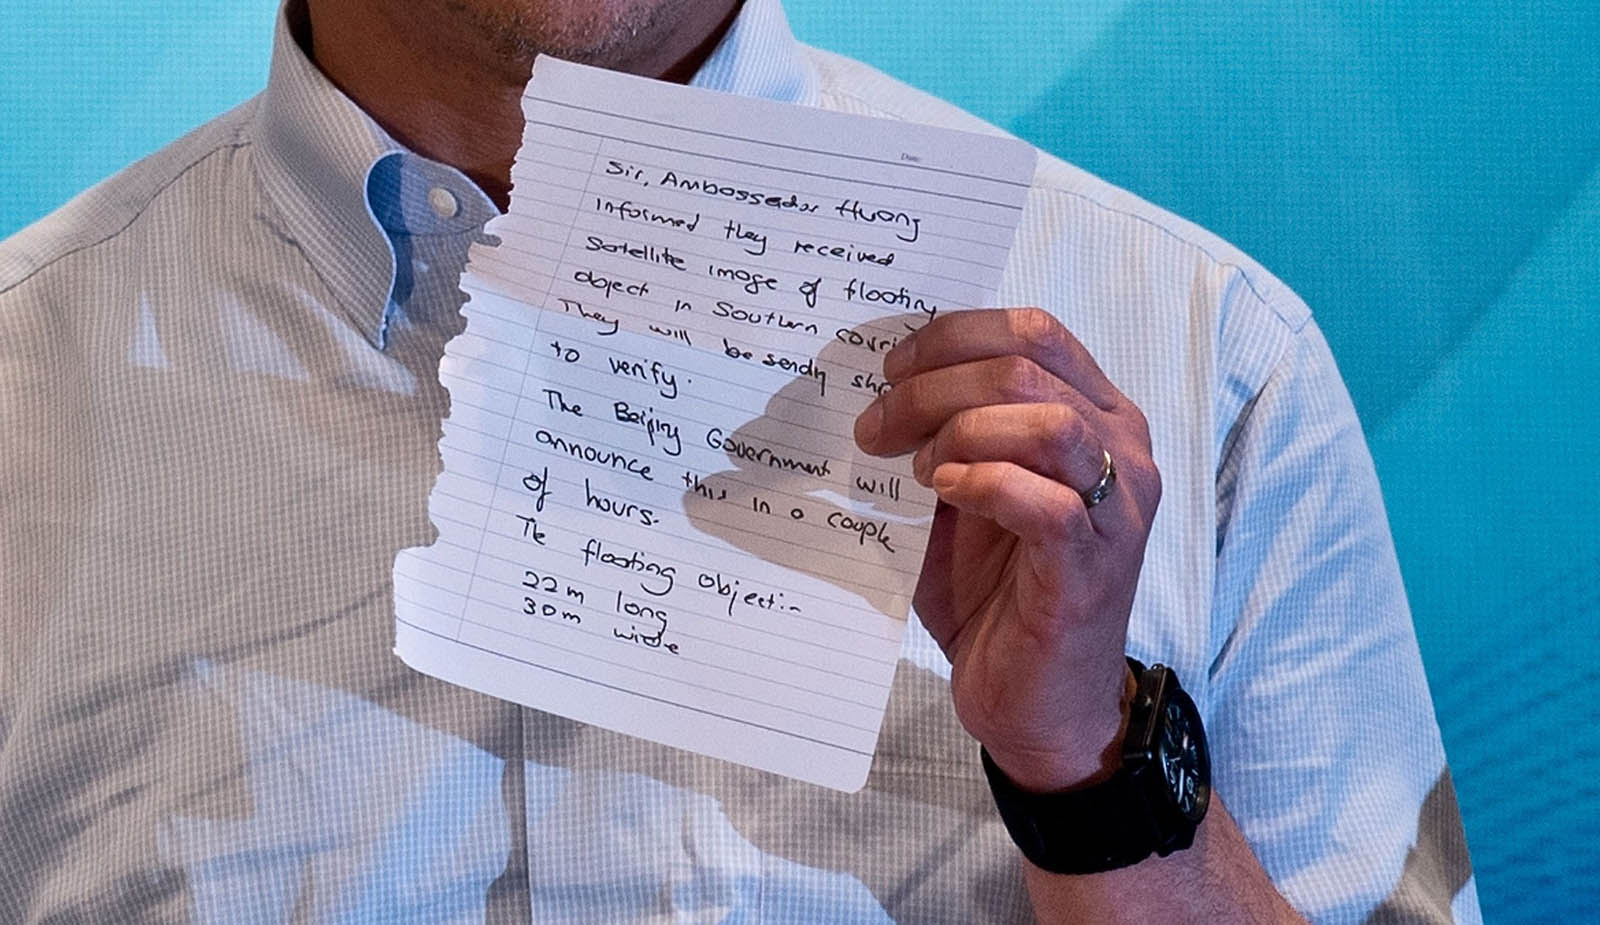 Date:
Sir, Ambassador Huang
informed they received
satellite image of floating
object in Southern
They will be sending
to verify.
The Beijing Government will
announce this in a couple
of hours.
The floating object:-
22m long
30m wide